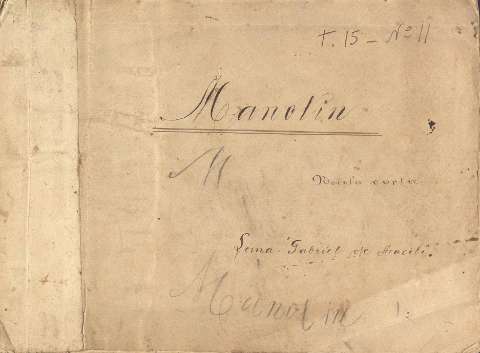 T. 15 - Nº 11
Manolin
M
Novela corta
Lema "Gabriel de Araceli".
Manolin